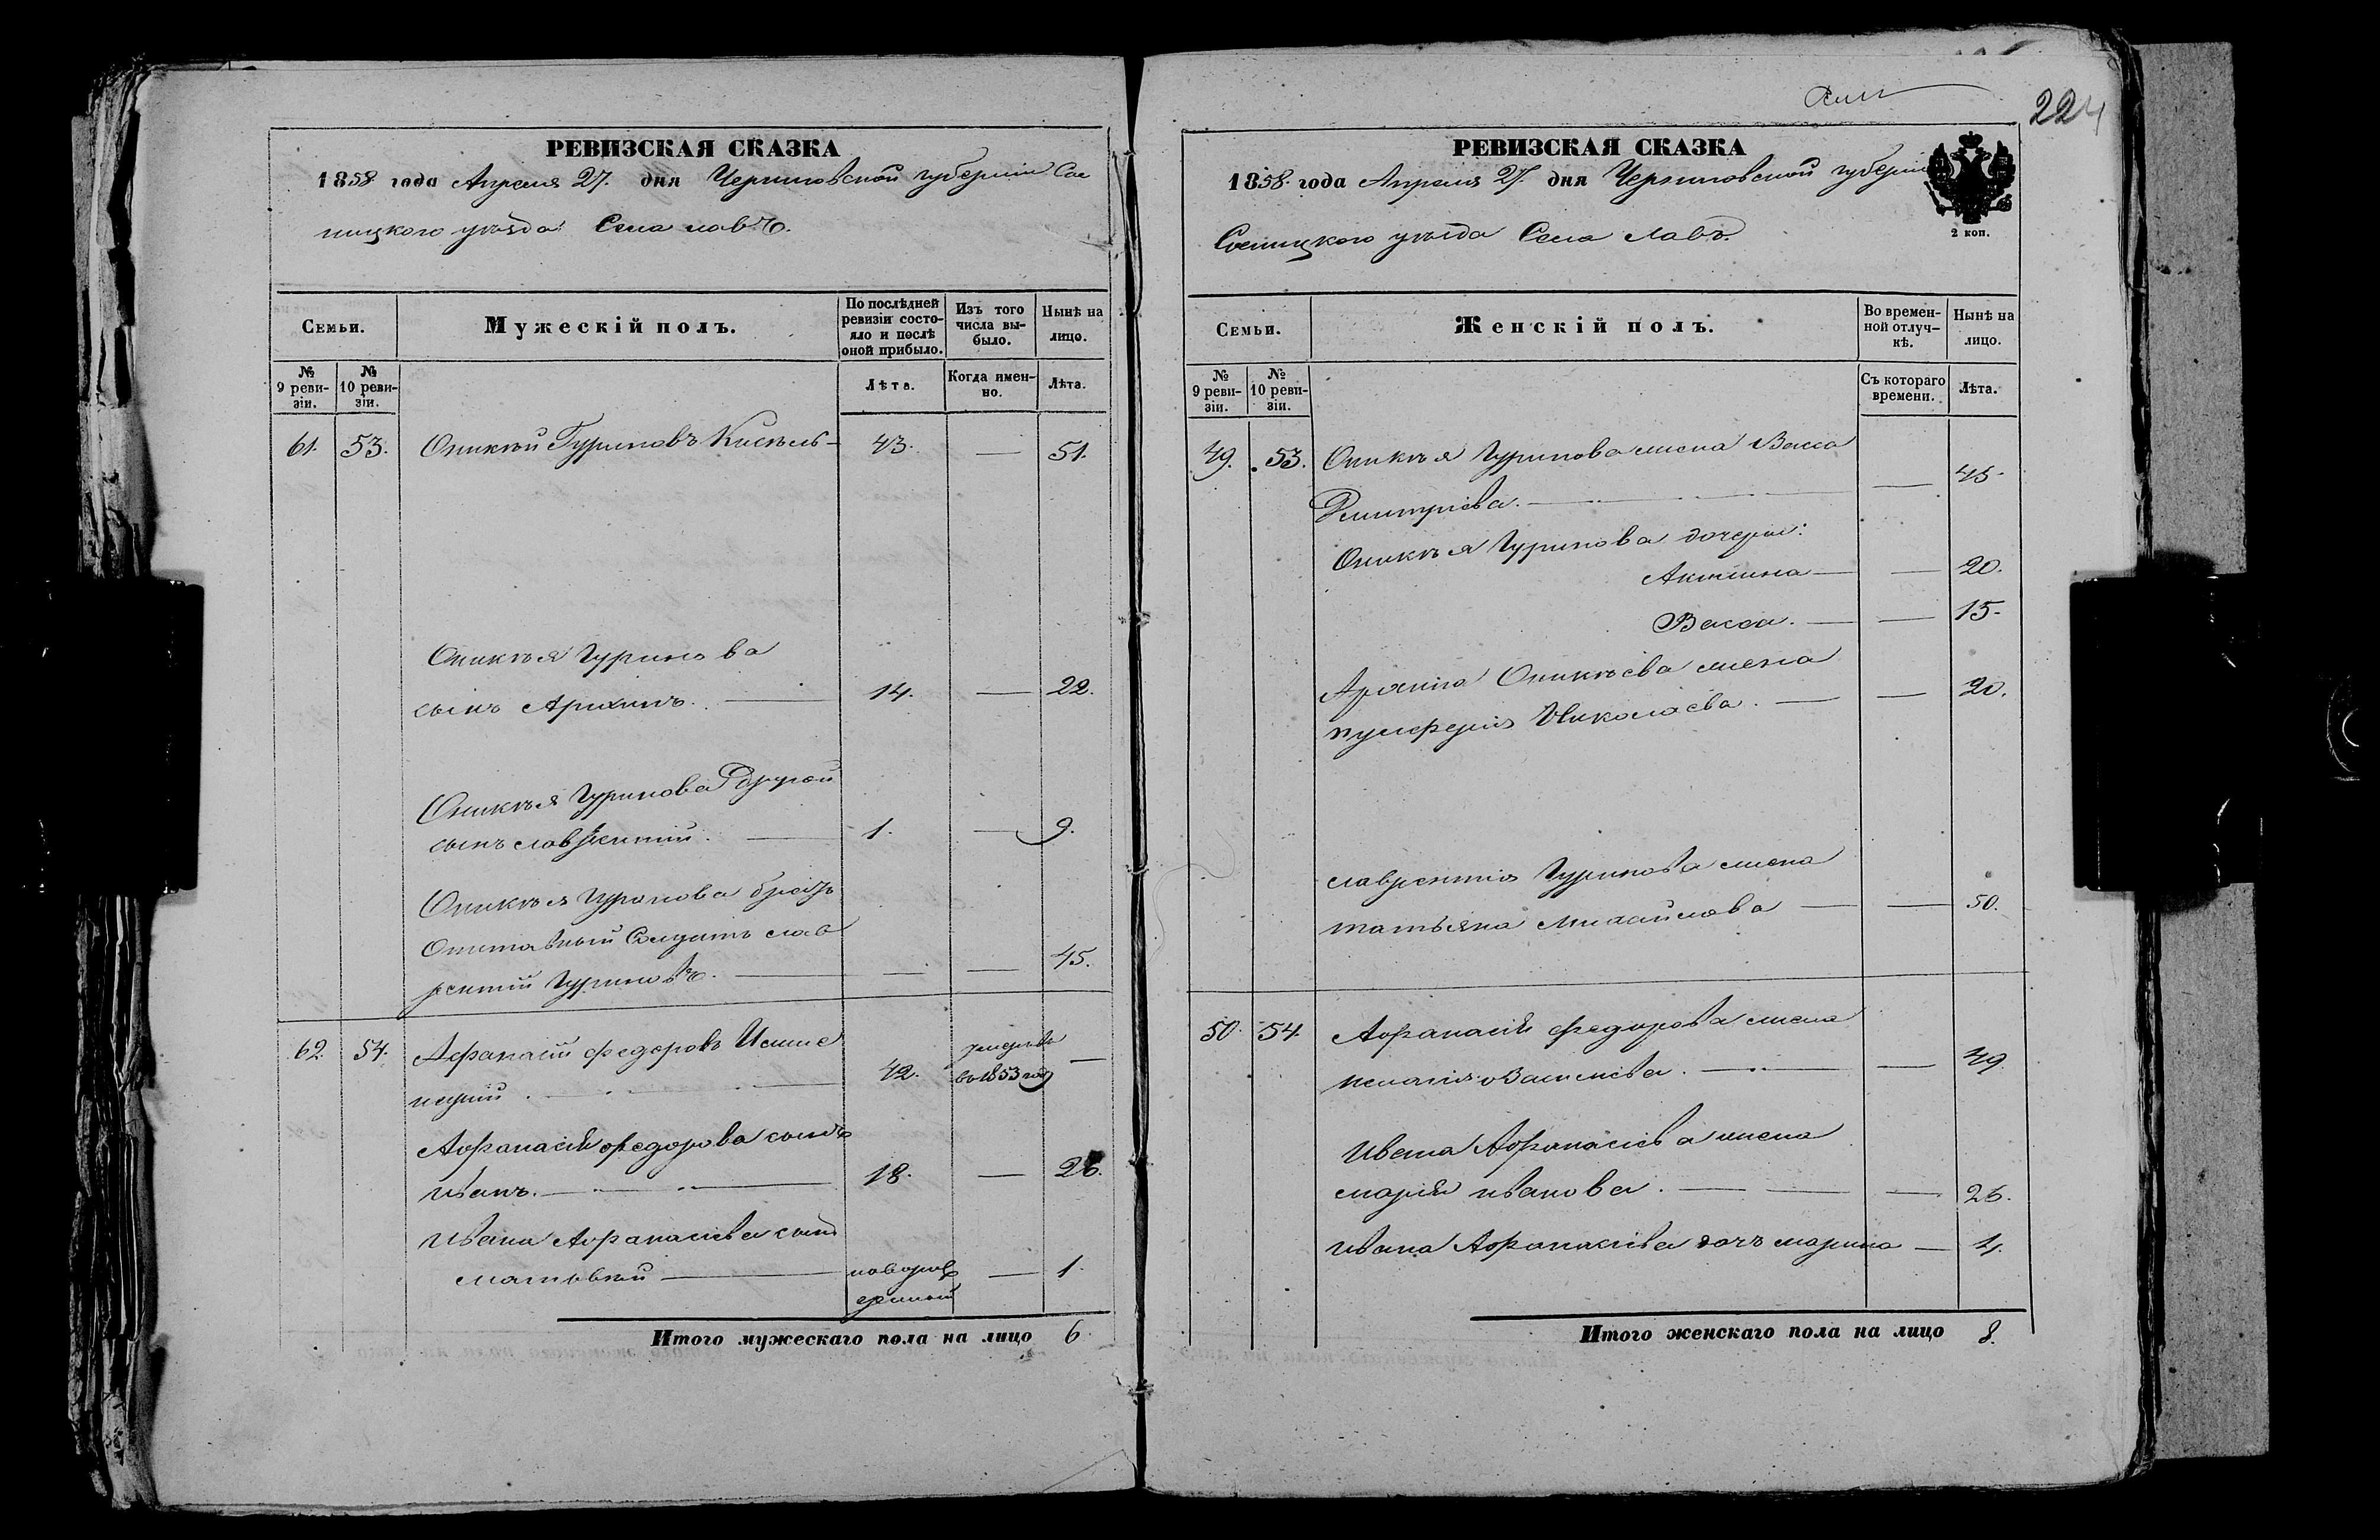 РЕВИЗСКАЯ СКАЗКА
1858 года Апреля 27. дня Черниговской губернии Сос
ницкого уѣзда Села Лавъ.
Семьи.
Мужескій полъ.
По послѣдней ревизіи состояло и послѣ оной прибыло.
Изъ того числа выбыло.
Нынѣ на лицо.
№ 9 ревизіи.
№ 10 ревизіи.
Лѣта.
Когда именно.
Лѣта.
61. 53. Оникѣй Гуриновъ Кисѣль — 43. — 51.
Оникѣя Гуринова
сынъ Архипъ. — 14. — 22.
Оникѣя Гуринова другой
сынъ Лаврентій. — 1. — 9.
Оникѣя Гуринова братъ
Отставный Солдатъ Лав
рентій Гуриновъ. — — — 45.
62. 54. Афанасій Федоровъ
42. умеръ въ 1853 году —
Афанасія Федорова сынъ
Иванъ. — 18. — 26.
Ивана Афанасіева сынъ
Матвѣй — новорожденный — 1.
Итого мужескаго пола на лицо 6.
224
РЕВИЗСКАЯ СКАЗКА
1858. года Апреля 27. дня Черниговской губерніи
Сосницкого уѣзда Села Лавъ.
2 коп.
Семьи.
Женскій полъ.
Во временной отлучкѣ.
Нынѣ на лицо.
№ 9 ревизіи.
№ 10 ревизіи.
Съ котораго времени.
Лѣта.
49. 53. Оникѣя Гуринова жена Васса
Дмитріева. — — 45.
Оникѣя Гуринова дочери:
Акилина — — 20.
Васса. — — 15.
Архипа Оникѣева жена
Николаева. — — 20.
Лаврентія Гуринова жена
Татьяна Михайлова — — 50.
50. 54. Афанасія Федорова жена
— — 49.
Ивана Афанасіева жена
Марія Иванова. — — 26.
Ивана Афанасіева дочь Марина — 4.
Итого женскаго пола на лицо 8.